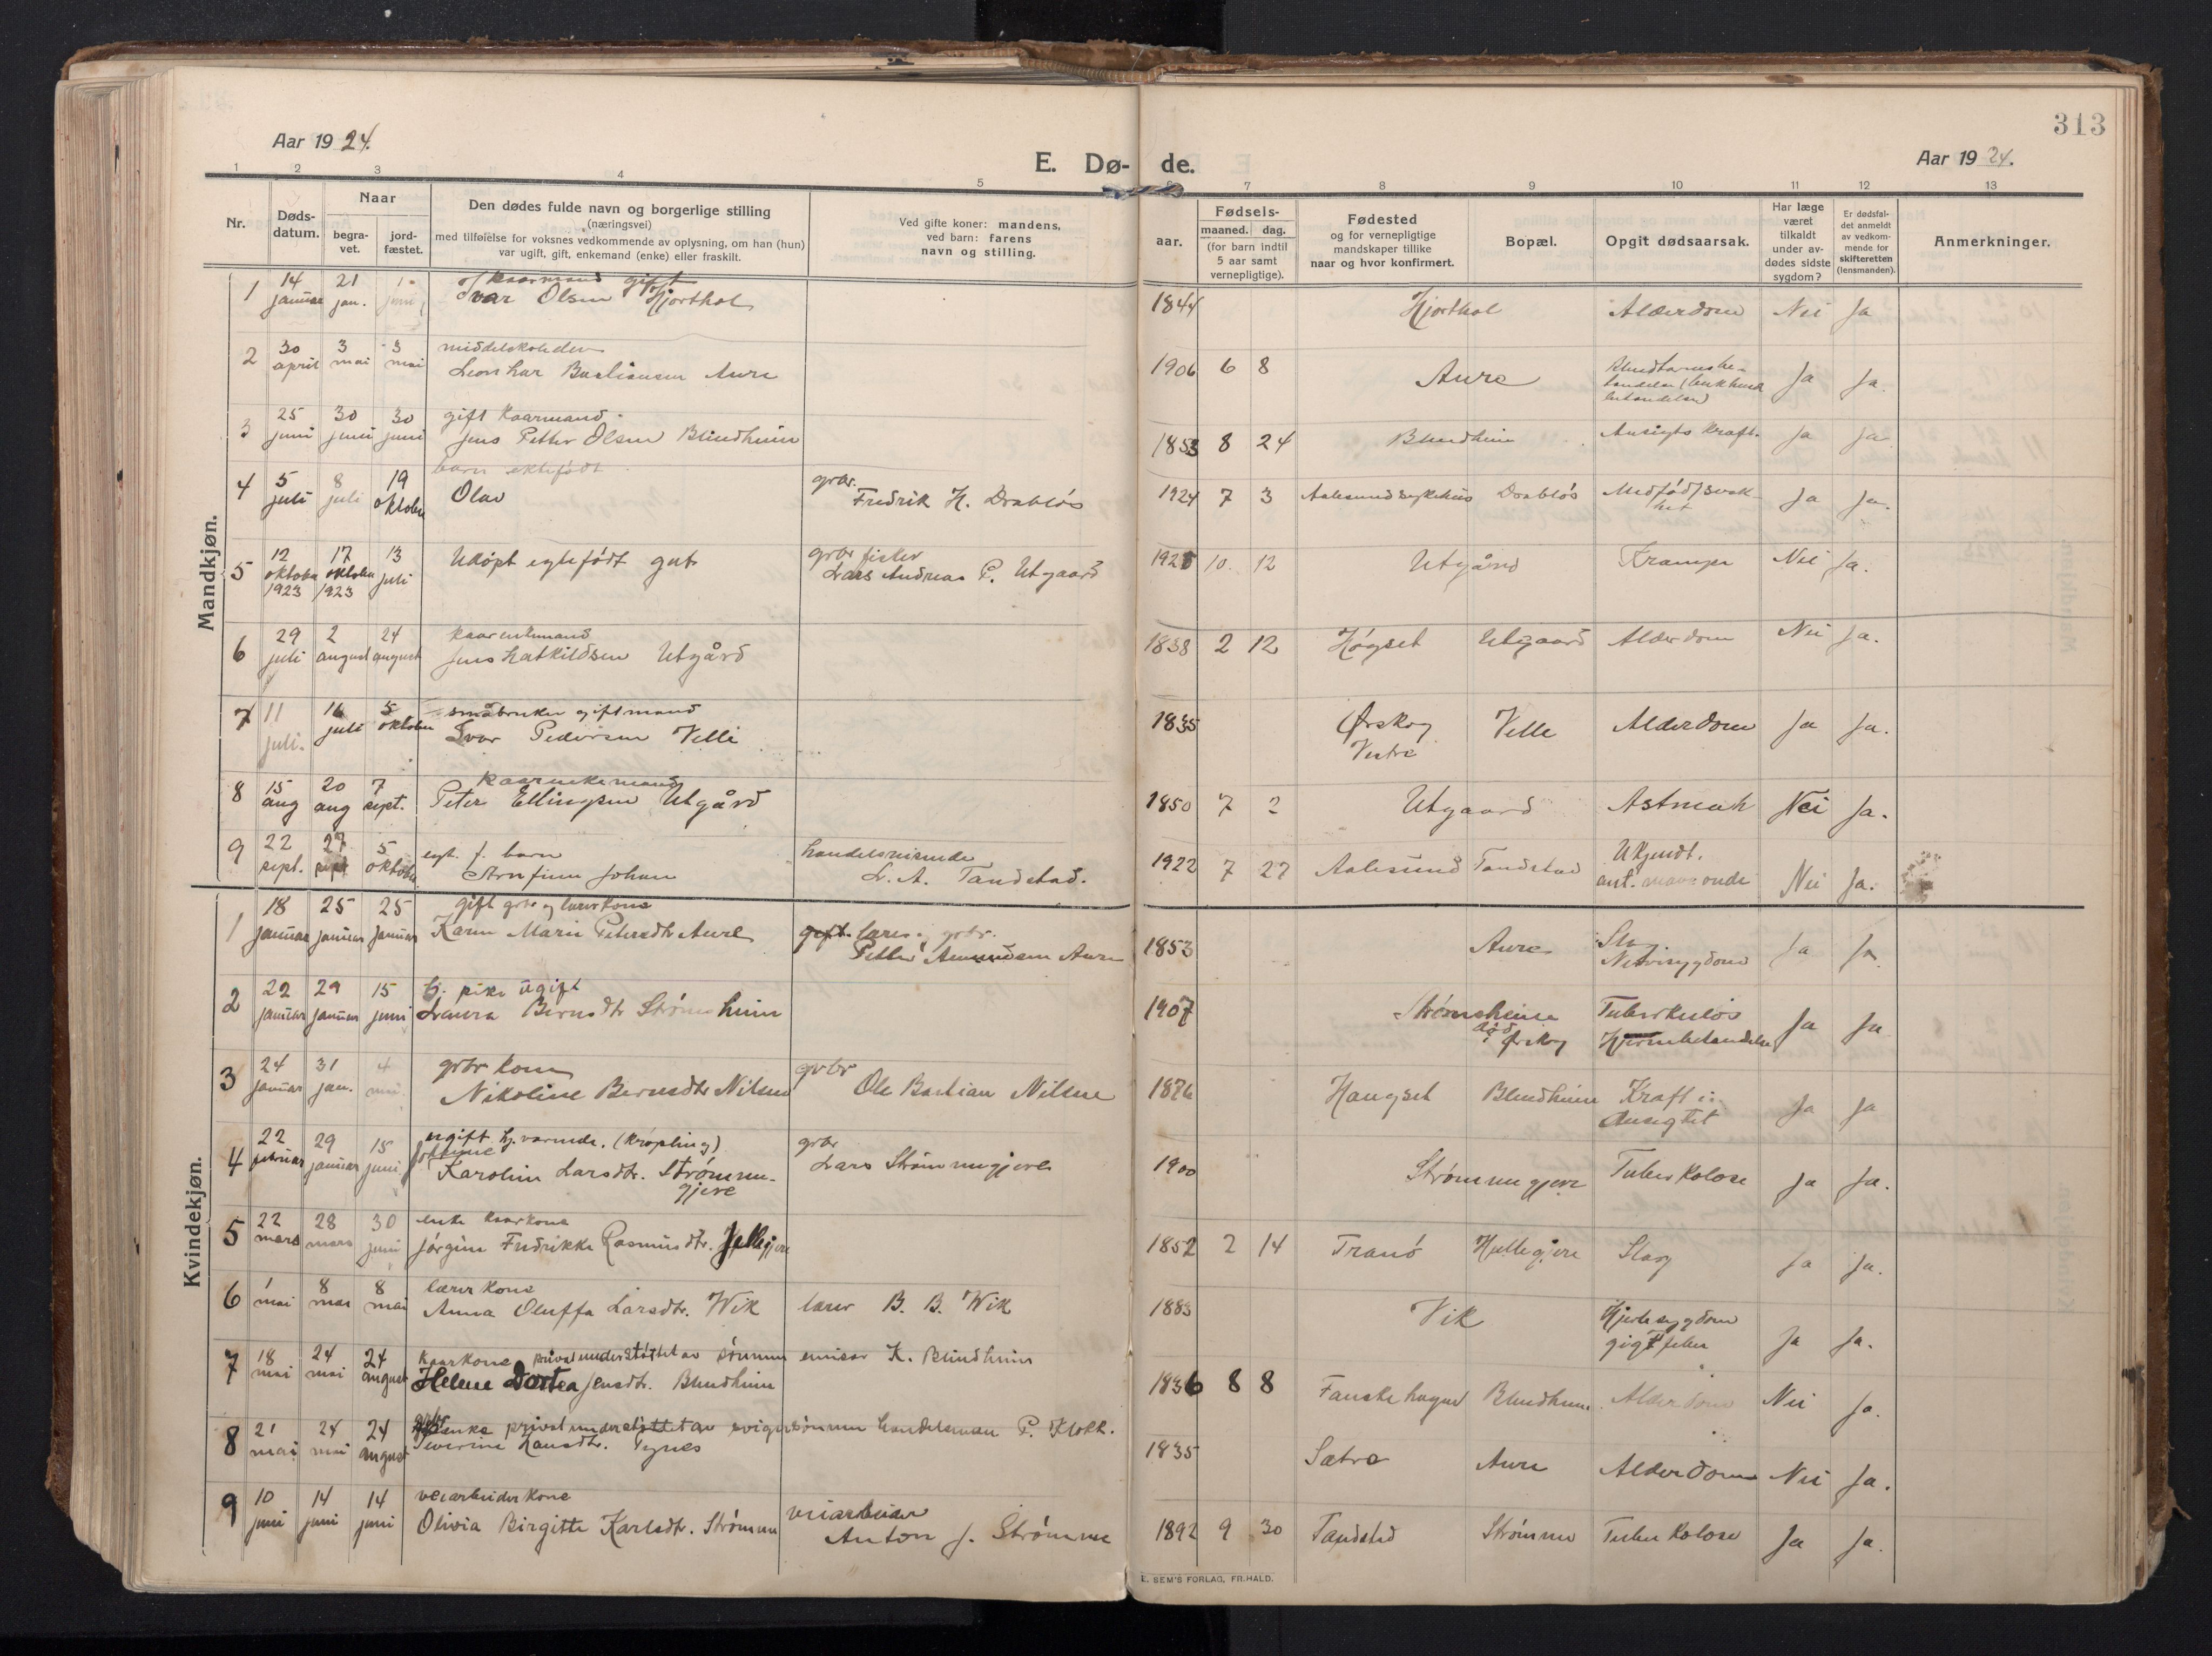 313
Aar 1924.
E. Dø- de.
Aar 1924.
1 2 3 4 5 6 7 8 9 10 11 12 13
Nr.
Døds-
datum.
Naar
begra-
vet.
jord-
fæstet.
Den dødes fulde navn og borgerlige stilling
(næringsvei)
med tilføielse for voksnes vedkommende av oplysning, om han (hun)
var ugift, gift, enkemand (enke) eller fraskilt.
Ved gifte koner: mandens,
ved barn: farens
navn og stilling.
aar.
Fødsels-
maaned. dag.
(for barn indtil
5 aar samt
vernepligtige).
Fødested
og for vernepligtige
mandskaper tillike
naar og hvor konfirmert.
Bopæl.
Opgit dødsaarsak.
Har læge
været
tilkaldt
under av-
dødes sidste
sygdom?
Er dødsfal-
det anmeldt
av vedkom-
mende for
skifteretten
(lensmanden).
Anmerkninger.
Mandkjøn.
1 14 januar 21 jan. juni kaarmand gift
Ivar Olsen Hjorthol 1844 Hjorthol Alderdom Nei Ja
2 30 april 3 mai 3 mai
Leonhar Bastiansen Aure 1906 6 8 Aure Ja Ja.
3 25 juni 30 juni 30 juni gift kaarmand
Jens Petter Olsen Blindheim 1853 8 24 Blindheim Ansigts kraft. Ja Ja
4 5 juli 8 juli 19 oktober barn ektefødt
Olav grbr. Fredrik H. Drabløs 1924 7 3 Aalesund sykehus Drabløs Medfødt svak-
het Ja Ja.
5 12 oktober 1923 17 oktober 1923 13 juli Udøpt egtefødt gut grbr fisker
Lars Andreas P. Utgaard 10. 12 Utgård Kramper Nei Ja.
6 29 juli 2 august 24 august kaarenkemand
Jens Hatkildsen Utgård 1838 2 12 Høgset Utgaard Alderdom Nei Ja.
7 11 juli. 16 juli 5 oktober småbruker gift mand
Ivar Pedersen Velle 1835 Ørskog
Vestre Velle Alderdom Ja Ja.
8 15 aug 20 aug 7 sept. kaarenkemand
Peter Ellingsen Utgård 1850 7 2 Utgaard Astmah Nei Ja.
9 22 sept. 27 sept 5 oktober egt. f. barn
Arnfinn Johan handelsreisende
L. A. Tandstad. 1922 7 27 Aalesund Tandstad Ukjendt.
ant. mave onde Nei Ja.
Kvindekjøn.
1 18 januar 25 januar 25 januar gift grbr og lærerkone
Karen Marie Petersdtr Aure gift lærer, grbr.
Petter Amundsen Aure 1853 Aure Slag.
Nervesygdom Ja Ja
2 22 januar 29 januar 15 juni tj. pike ugift
Laura Berntsdtr Strømsheim 1907 Strømsheim
død
i Ørskog Tuberkuløs
Hjernebetendelse Ja Ja
3 24 januar 31 jan. 4 grbr kone
Nikoline Berntsdtr Nilsen grbr
Ole Bastian Nilsen 1876 Haugset Blindheim Kraft i
Ansigtet Ja Ja
4 22 februar 29 januar 15 juni ugift hj. værende. (Krøpling)
Karoline Larsdtr. Strømme-
gjere grbr
Lars Strømmegjere 1900 Strømmegjere Tuberkolose Ja Ja.
5 22 mars 28 mars 30 juni enke kaarkone
Jørgine Fredrikke Rasmusdtr. Hellegjere 1852 2 14 Tranø Hellegjere Slag Ja Ja.
6 1 mai 8 mai 8 mai lærerkone
Anna Oluffa Larsdtr. Wik lærer B. B. Wik 1883 Vik Hjertesygdom
gigtfeber Ja Ja.
7 18 mai 24 mai 24 august kaarkone privat understøttet av sønnen emisær K. Blindheim
Helene Dortea Jensdtr. Blindheim 1836 8 8 Blindheim Alderdom Nei Ja.
8 21 mai 24 mai 24 august enke privat understøttet av svigersønnen handelsman P. Klokk.
Severine Hansdtr. Tynes 1835 Sætre Aure Alderdom Nei Ja.
9 10 juni 14 juni 14 juni veiarbeider kone
Olivia Birgitte Karlsdtr. Strømme veiarbeider
Anton J. Strømme 1892 9 30 Tandstad Strømme Tuberkolose Ja Ja.
E. SEM'S FORLAG, FR. HALD.